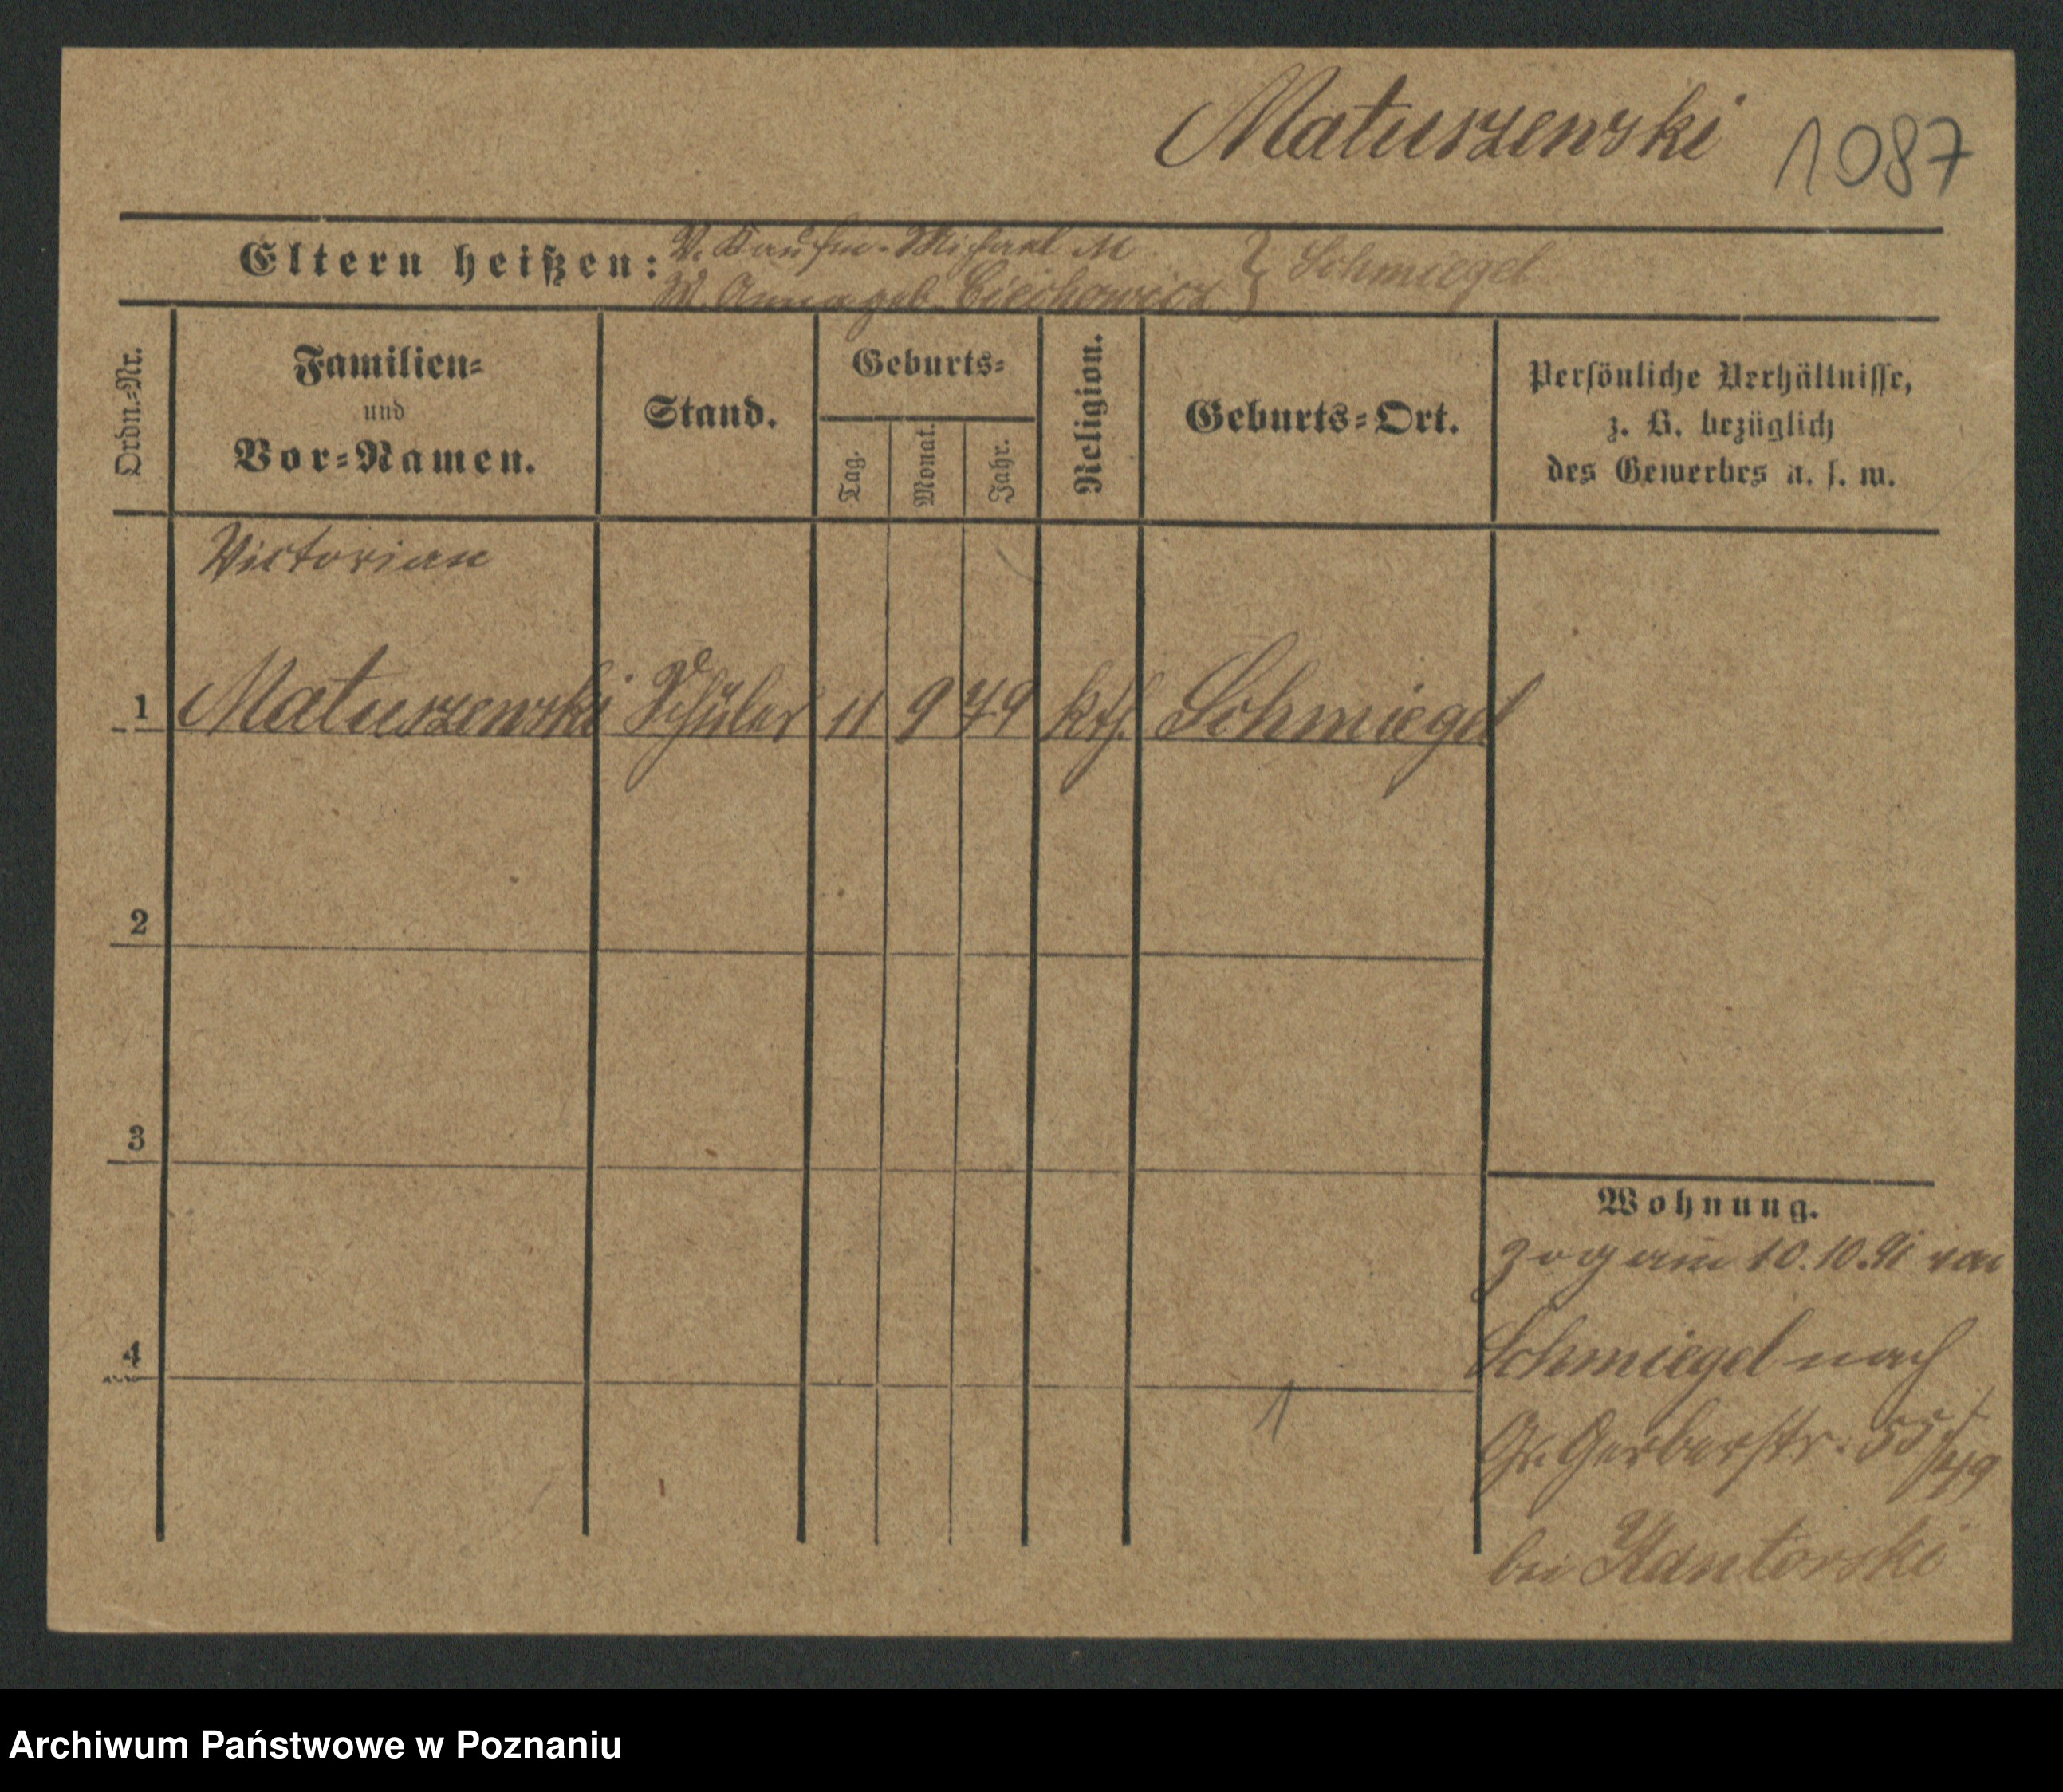 Matuszewski 1087
Eltern heißen: V. Kaufm. Michael M
M. Anna geb. Ciechowicz } Schmiegel
Ordn.-Nr.
Familien-
und
Vor-Namen.
Stand.
Geburts-
Tag.
Monat.
Jahr.
Religion.
Geburts-Ort.
Persönliche Verhältnisse,
z. B. bezüglich
des Gewerbes u. s. w.
Victorian
1 Matuszewski Schüler 11 9 79 kth. Schmiegel
2
3
4
1
Wohnung.
zog am 10.10.91 von
Schmiegel nach
Gr. Gerberstr. 55
bei Kantorski
Archiwum Państwowe w Poznaniu